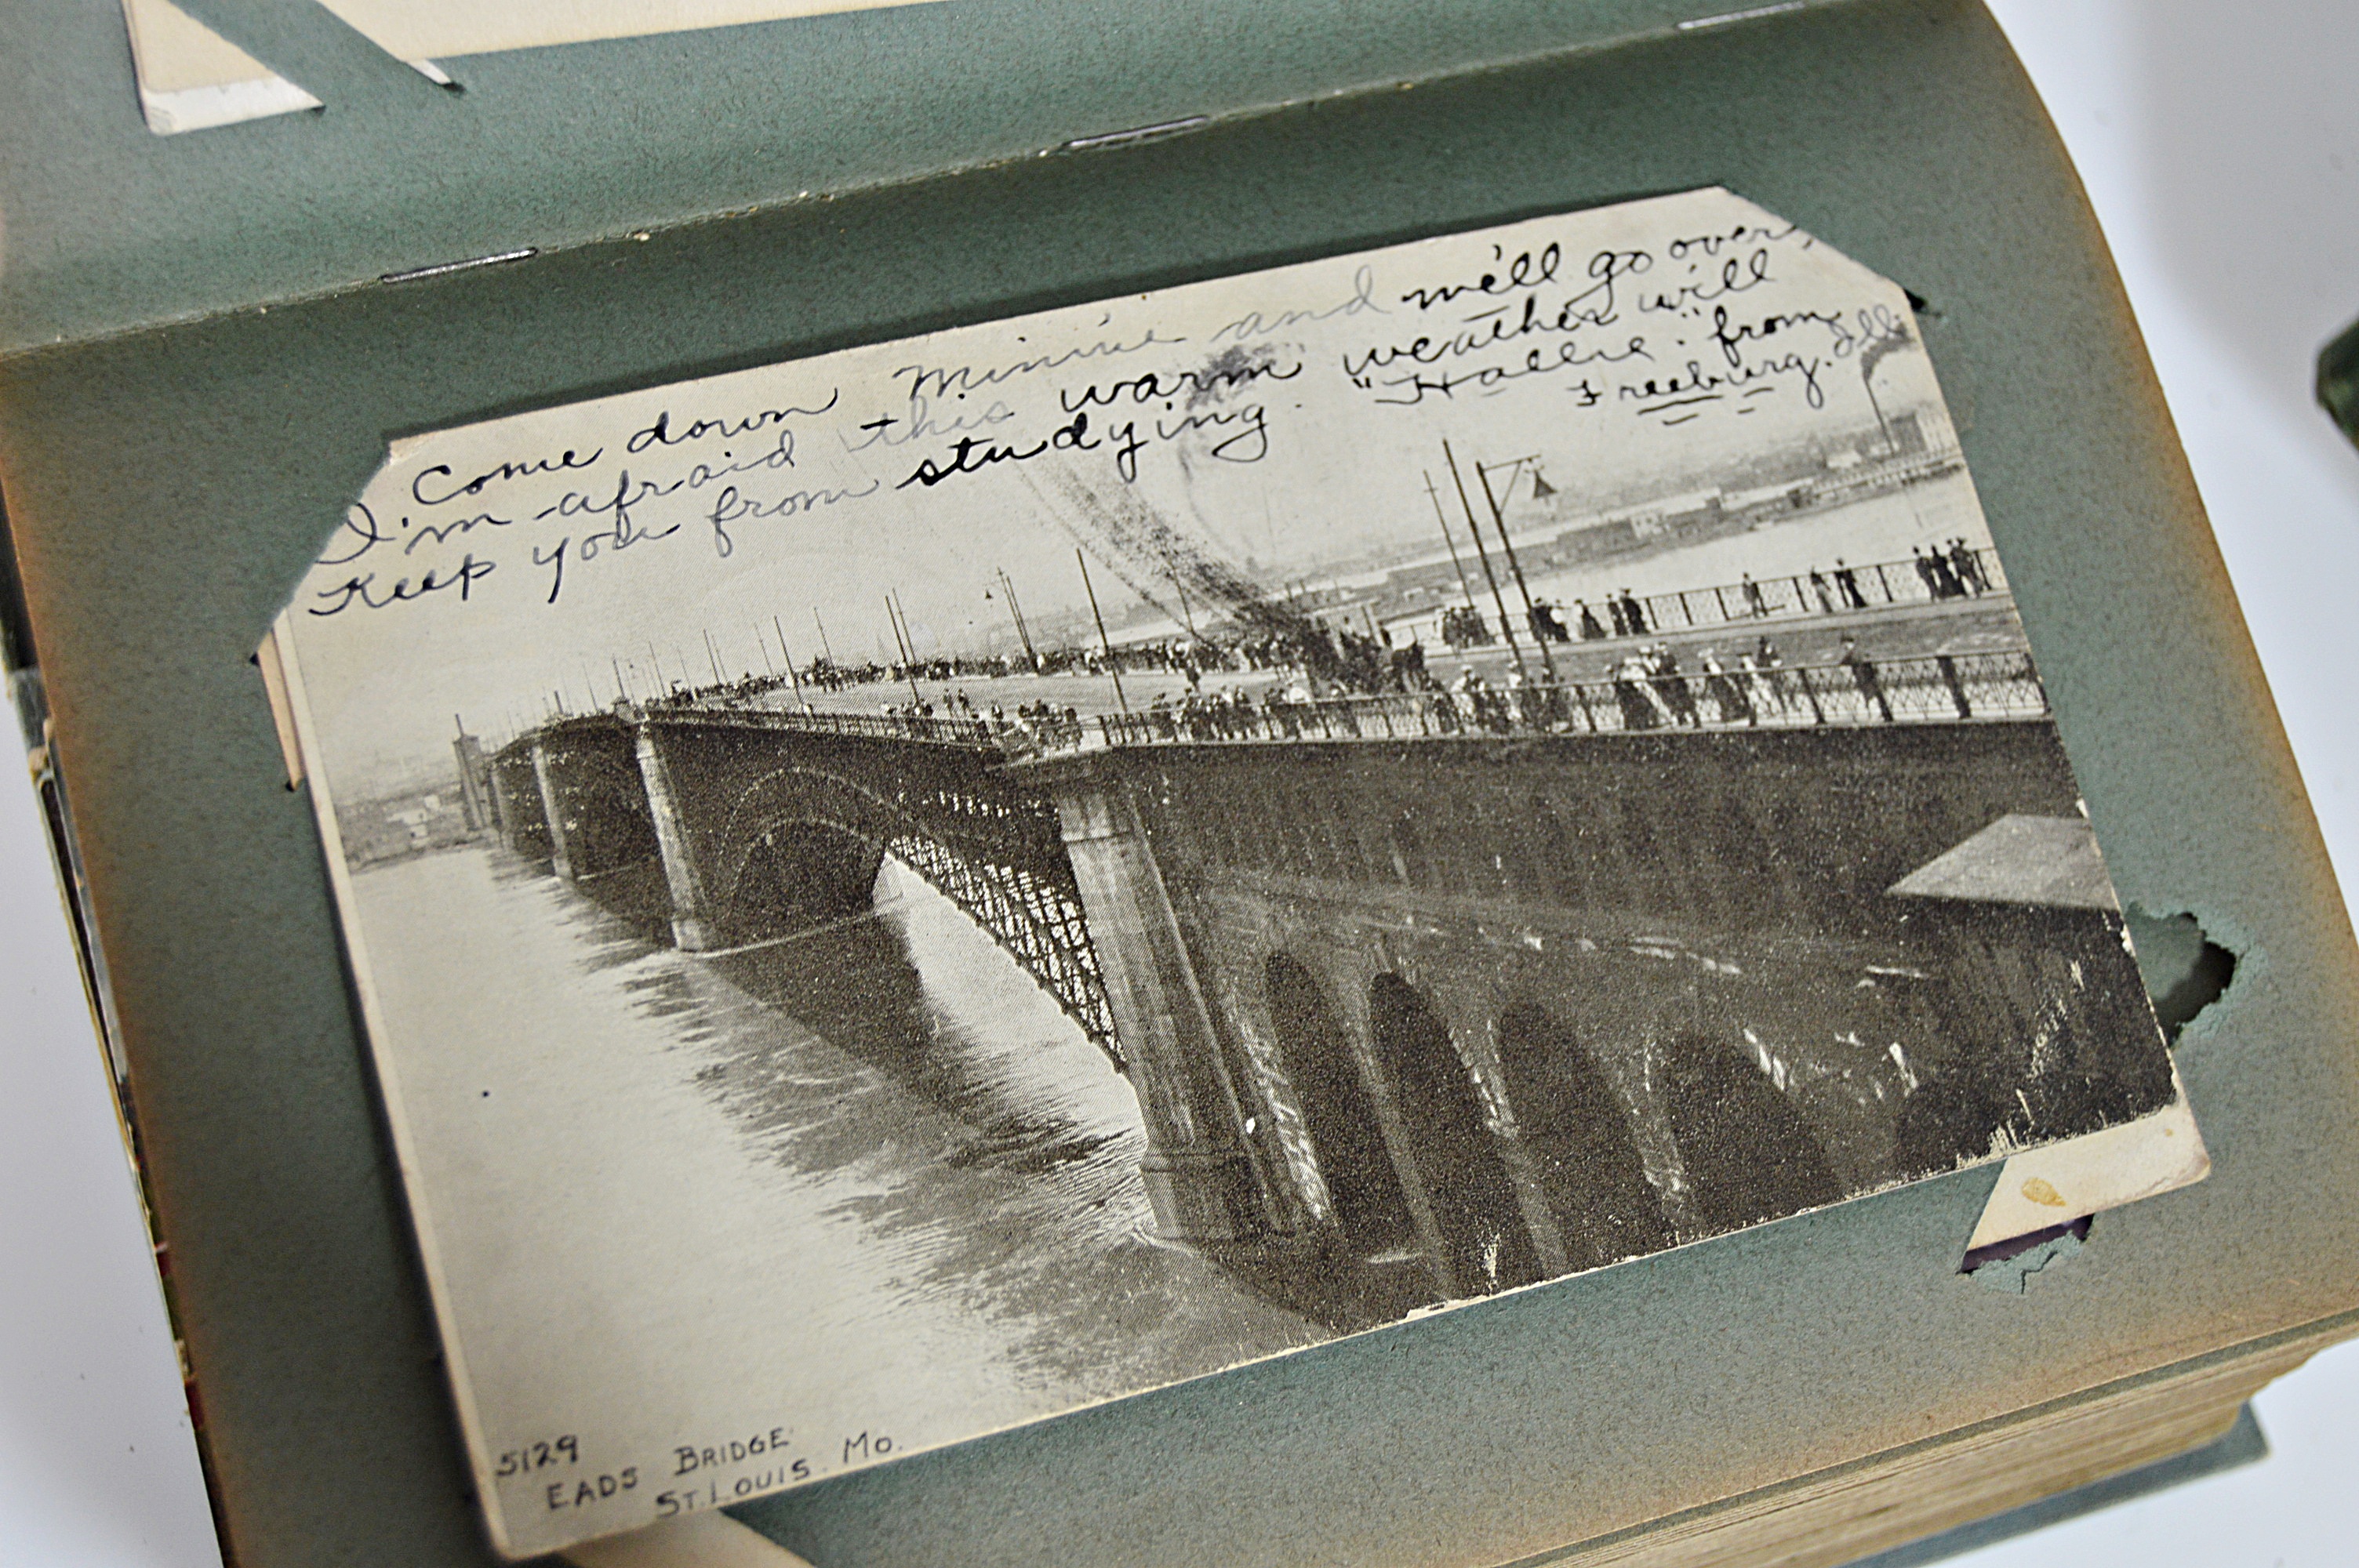 Come down Minnie and we'll go over,
I'm afraid this warm weather will
Keep you from studying. "Hallie." from
Freeburg. Ill.
5129
EADS BRIDGE
ST. LOUIS. MO.